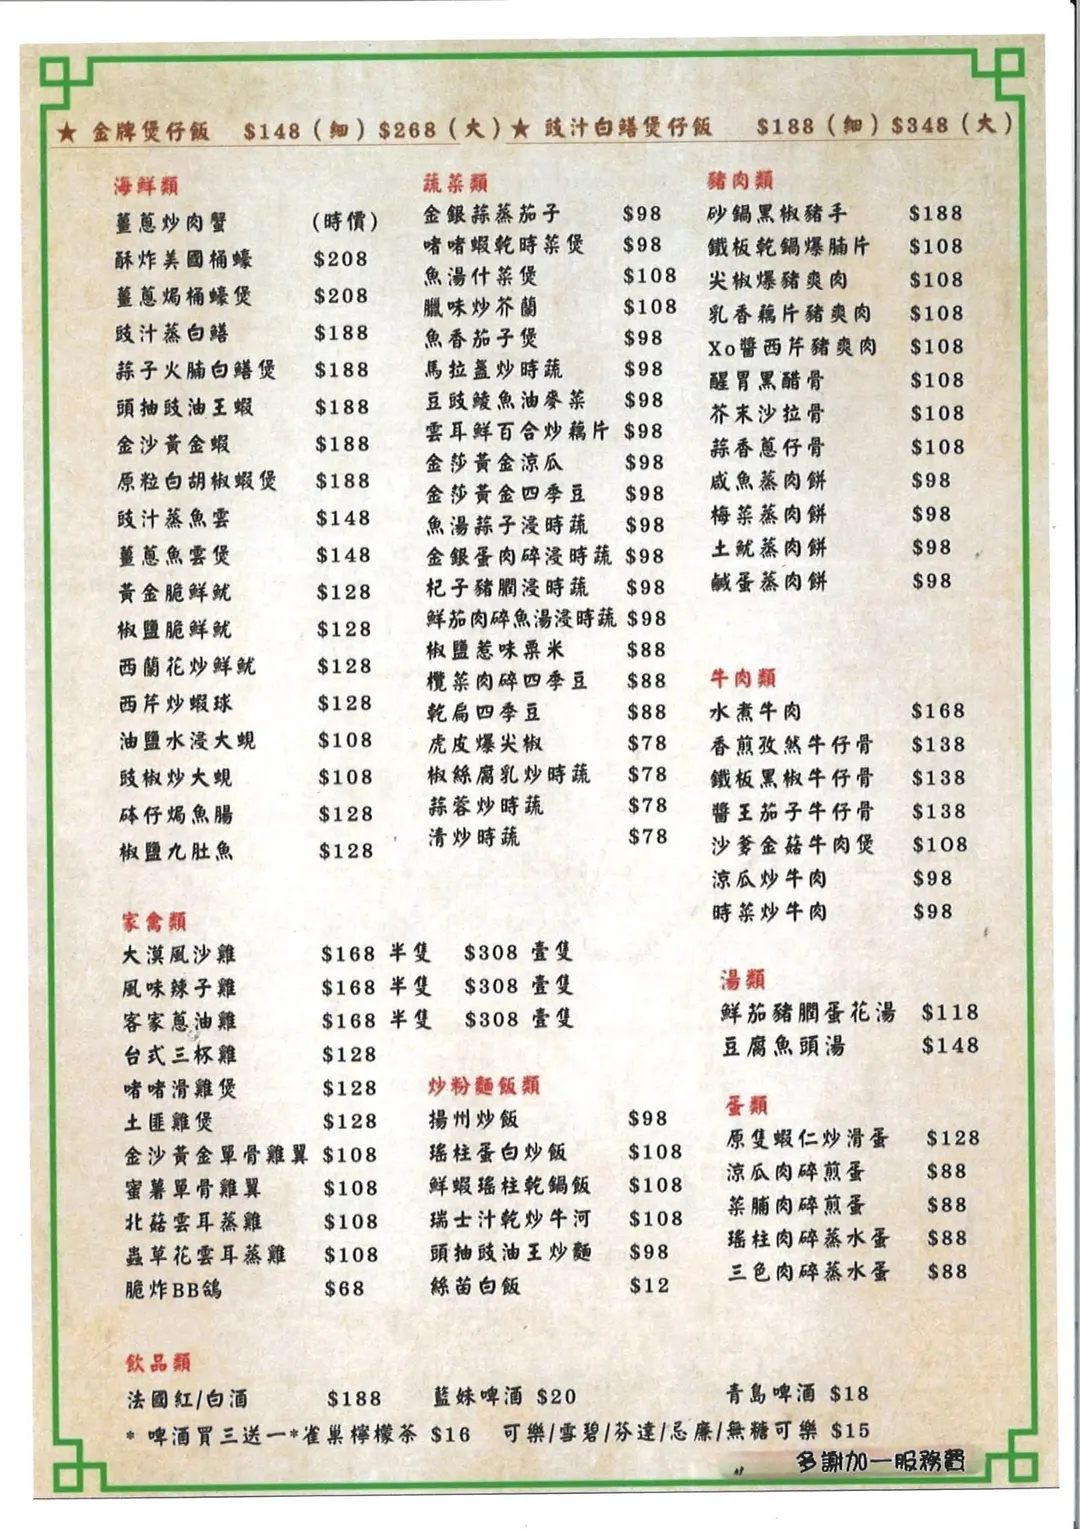 ★ 金牌煲仔飯 $148(細) $268(大) ★ 豉汁白鱔煲仔飯 $188(細) $348(大)
海鮮類
薑蔥炒肉蟹 (時價)
酥炸美國桶蠔 $208
薑蔥焗桶蠔煲 $208
豉汁蒸白鱔 $188
蒜子火腩白鱔煲 $188
頭抽豉油王蝦 $188
金沙黃金蝦 $188
原粒白胡椒蝦煲 $188
豉汁蒸魚雲 $148
薑蔥魚雲煲 $148
黃金脆鮮魷 $128
椒鹽脆鮮魷 $128
西蘭花炒鮮魷 $128
西芹炒蝦球 $128
油鹽水浸大蜆 $108
豉椒炒大蜆 $108
砵仔焗魚腸 $128
椒鹽九肚魚 $128
蔬菜類
金銀蒜蒸茄子 $98
啫啫蝦乾時菜煲 $98
魚湯什菜煲 $108
臘味炒芥蘭 $108
魚香茄子煲 $98
馬拉盞炒時蔬 $98
豆豉鯪魚油麥菜 $98
雲耳鮮百合炒藕片 $98
金莎黃金涼瓜 $98
金莎黃金四季豆 $98
魚湯蒜子浸時蔬 $98
金銀蛋肉碎浸時蔬 $98
杞子豬膶浸時蔬 $98
鮮茄肉碎魚湯浸時蔬 $98
椒鹽惹味粟米 $88
欖菜肉碎四季豆 $88
乾扁四季豆 $88
虎皮爆尖椒 $78
椒絲腐乳炒時蔬 $78
蒜蓉炒時蔬 $78
清炒時蔬 $78
豬肉類
砂鍋黑椒豬手 $188
鐵板乾鍋爆腩片 $108
尖椒爆豬爽肉 $108
乳香藕片豬爽肉 $108
Xo醬西芹豬爽肉 $108
醒胃黑醋骨 $108
芥末沙拉骨 $108
蒜香蔥仔骨 $108
咸魚蒸肉餅 $98
梅菜蒸肉餅 $98
土魷蒸肉餅 $98
鹹蛋蒸肉餅 $98
牛肉類
水煮牛肉 $168
香煎孜然牛仔骨 $138
鐵板黑椒牛仔骨 $138
醬王茄子牛仔骨 $138
沙爹金菇牛肉煲 $108
涼瓜炒牛肉 $98
時菜炒牛肉 $98
家禽類
大漠風沙雞 $168 半隻 $308 壹隻
風味辣子雞 $168 半隻 $308 壹隻
客家蔥油雞 $168 半隻 $308 壹隻
台式三杯雞 $128
啫啫滑雞煲 $128
土匪雞煲 $128
金沙黃金單骨雞翼 $108
蜜薯單骨雞翼 $108
北菇雲耳蒸雞 $108
蟲草花雲耳蒸雞 $108
脆炸BB鴿 $68
炒粉麵飯類
揚州炒飯 $98
瑤柱蛋白炒飯 $108
鮮蝦瑤柱乾鍋飯 $108
瑞士汁乾炒牛河 $108
頭抽豉油王炒麵 $98
絲苗白飯 $12
湯類
鮮茄豬膶蛋花湯 $118
豆腐魚頭湯 $148
蛋類
原隻蝦仁炒滑蛋 $128
涼瓜肉碎煎蛋 $88
菜脯肉碎煎蛋 $88
瑤柱肉碎蒸水蛋 $88
三色肉碎蒸水蛋 $88
飲品類
法國紅/白酒 $188 藍妹啤酒 $20 青島啤酒 $18
* 啤酒買三送一*雀巢檸檬茶 $16 可樂/雪碧/芬達/忌廉/無糖可樂 $15
多謝加一服務費